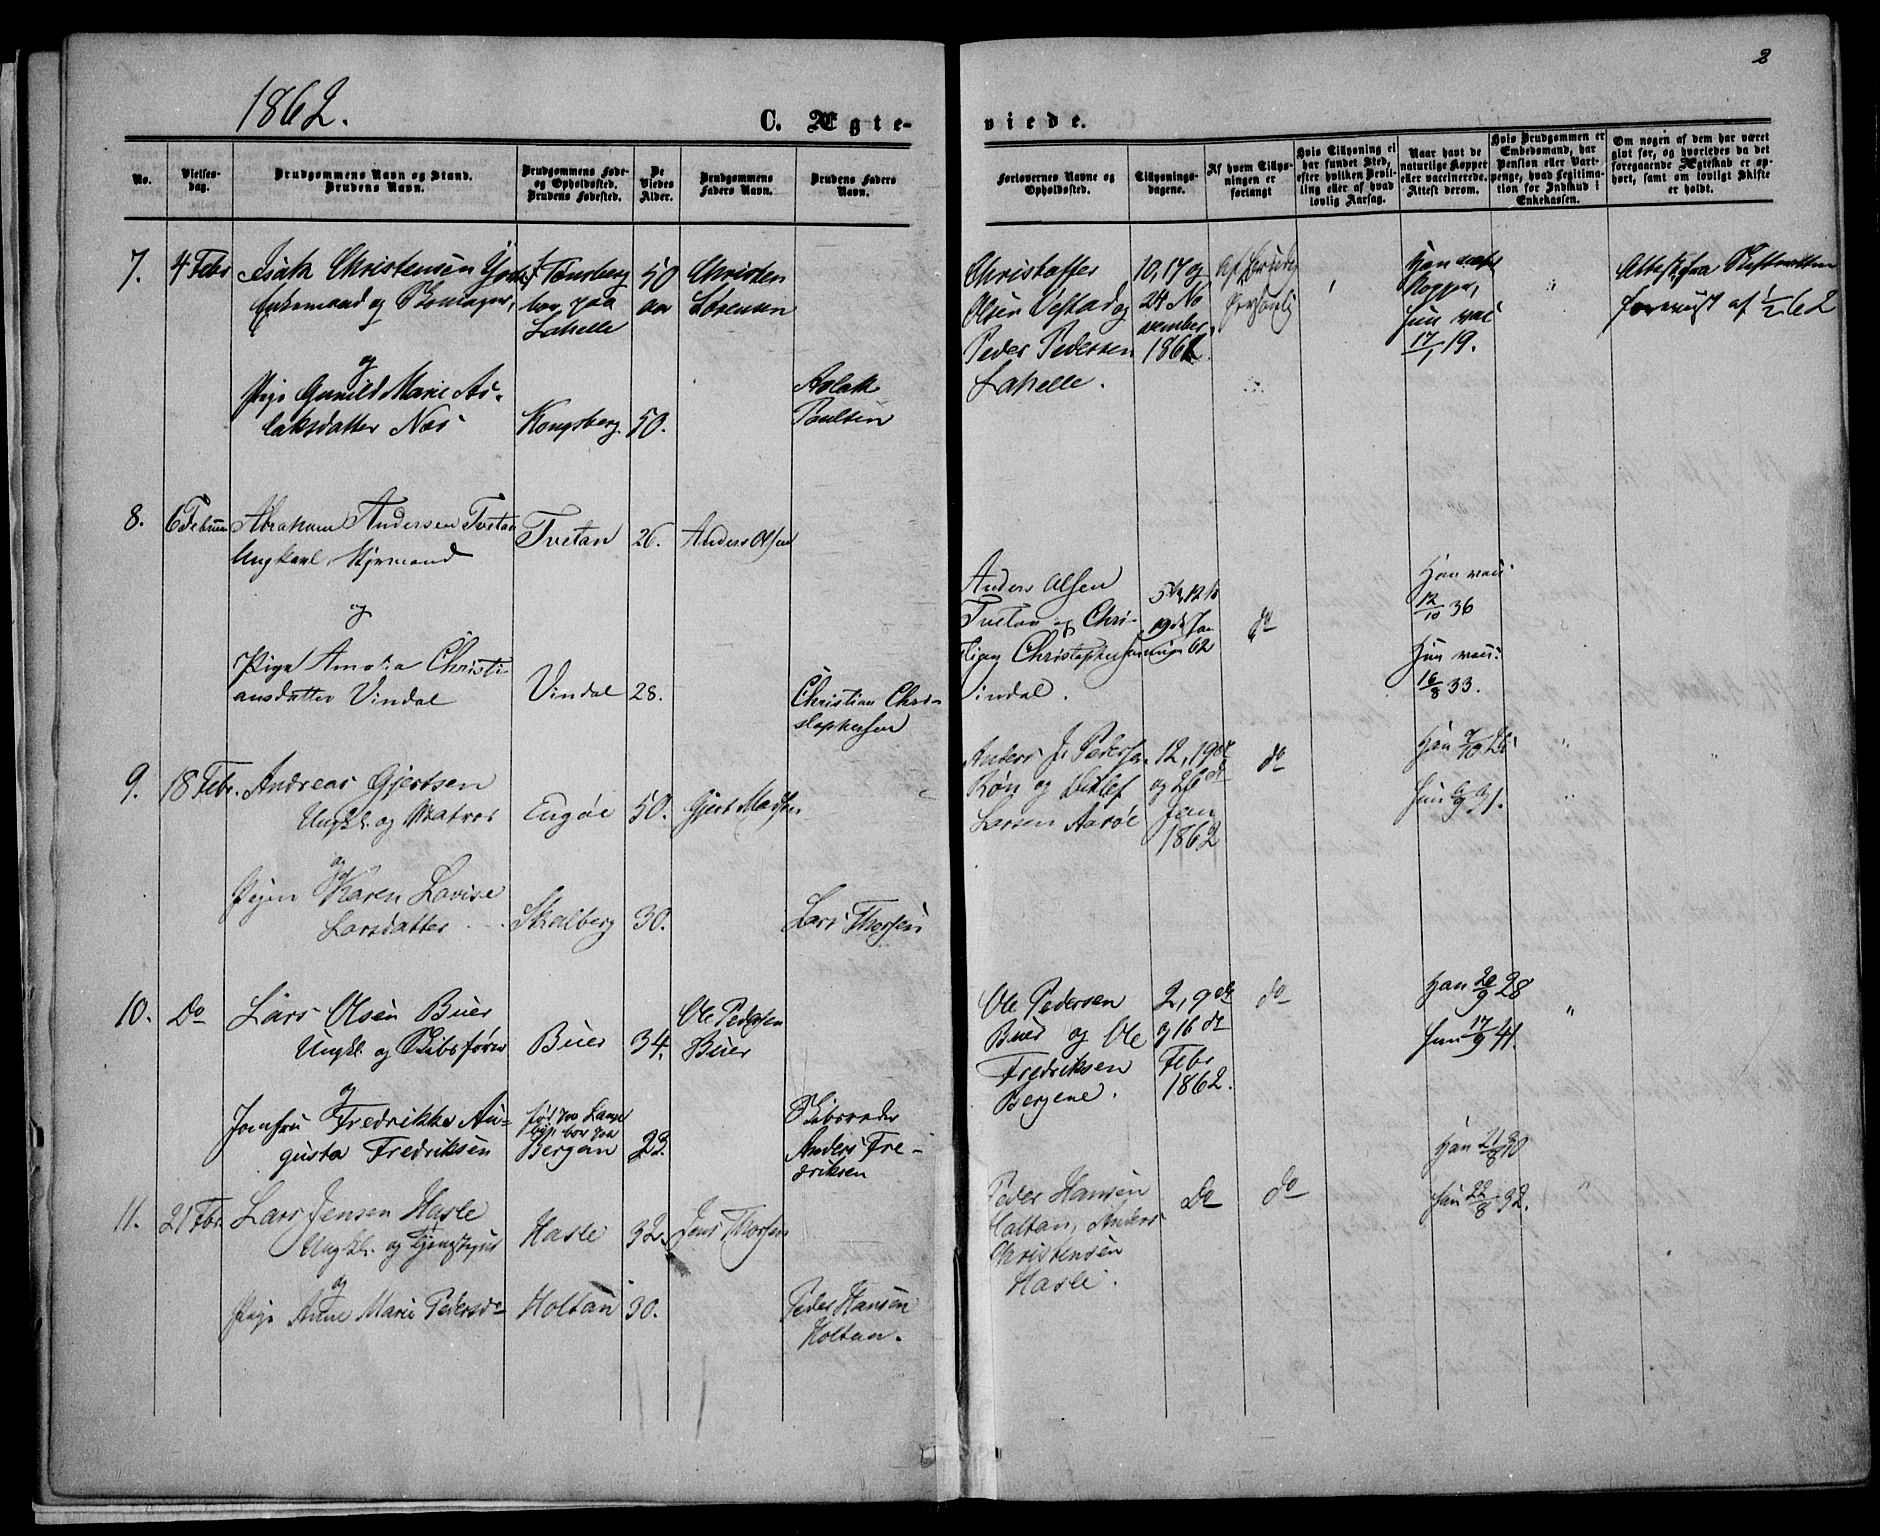 2
1862.
C. Ægte-
viede.
No.
Vielses-
dag.
Brudgommens Navn og Stand.
Brudens Navn.
Brudgommens Føde-
og Opholdssted.
Brudens Fødested.
De
Viedes
Alder.
Brudgommens
Faders Navn.
Brudens Faders
Navn.
Forlovernes Navne og
Opholdssted.
Tillysnings-
dagene.
Af hvem Tillys-
ningen er
forlangt
Hvis Tillysning ei
har fundet Sted,
efter hvilken Bevil-
ling eller af hvad
lovlig Aarsag.
Naar havt de
naturlige Kopper
eller vaccinerede.
Attest derom.
Hvis Brudgommen er
Embedsmand, har
Pension eller Vart-
penge, hvad Legitima-
tion for Indskud i
Enkekassen.
Om nogen af dem har været
givt før, og hvorledes da det
foregaaende Ægteskab er op-
hørt, samt om lovligt Skifte
er holdt.
7.
4 Febr
Isak Christensen
Enkemand og
og
Pige Gunild Marie As-
laksdatter Næs
Tønsberg
bor paa
Lahelle
Kongsberg.
50
aar
50.
Christen
Sørensen
Aslak
Poulsen
Christoffer
Olsen Vestad og
Peder Pedersen
Lahelle.
10, 17 og
24 No
vember
1861.
Af
personlig
Han
Kopper,
hun vac
17/1 19.
Attest fra Skifteretten
forevist af 1/2 62
8.
6 Februar
Abraham Andersen Tvetan
Ungkarl, Styrmand
og
Pige Amalia Christi
ansdatter Vindal
Tvetan
Vindal
26.
28.
Anders Olsen
Christian Chri-
stophersen
Anders Olsen
Tvetan og Chri-
stian Christophersen
Vindal.
5te, 12te
19de Ja
nuar 62
do
Han vac:
12/10 36
Hun vac:
16/8 33.
9.
18 Febr.
Andreas Gjertsen
Ungk. og Matros
og
Pigen Karen Lovise
Larsdatter
Engøe
Skalberg
50.
30.
Gjert Madsen
Lars Thorsen
Anders J. Pedersen
Røn og Ditlef
Larsen Aarøe
12, 19de
og 26de
Jan
1862
do
Han
Hun
10.
Do
Lars Olsen Buer
Ungk. og Skibsfører
og
Jomfru Fredrikke Au-
gusta Fredriksen
Buer
født paa
bor paa
Bergan
34.
23.
Ole Pedersen
Buer
Skibsreder
Anders Fre-
driksen
Ole Pedersen
Buer og Ole
Fredriksen
Bergene.
2, 9de
og 16de
Febr
1862.
do
Han 20/9 28
Hun 17/9 41.
11.
21 Fbr
Lars Jensen Hasle
Ungk. og
og
Pige Anne Marie Pedersd.
Hasle
Holtan
32.
30.
Jens Thorsen
Peder Hansen
Holtan.
Peder Hansen
Holtan, Anders
Christensen
Hasle.
Do
do
Han 21/8 30
Hun 22/8 32.